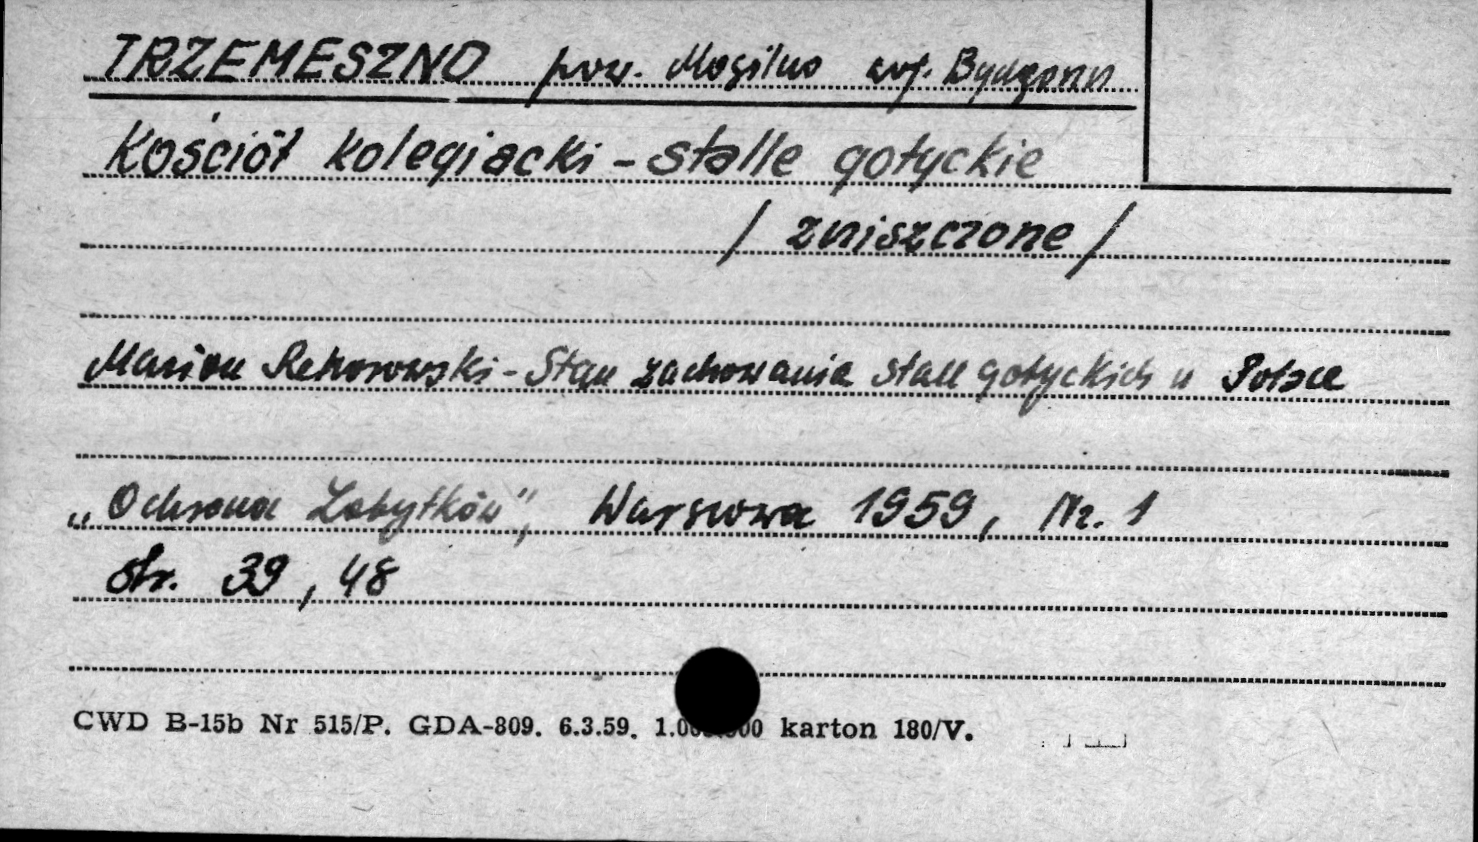 TRZEMESZNO pow. Mogilno woj. Bydgoszcz
Kościół kolegiacki - stalle gotyckie
/ zniszczone /
Marian Rehorowski - Stan zachowania stall gotyckich w Polsce
„Ochrona Zabytków", Warszawa 1959, Nr. 1
str. 39, 48
CWD B-15b Nr 515/P. GDA-809. 6.3.59. 1.000.000 karton 180/V.